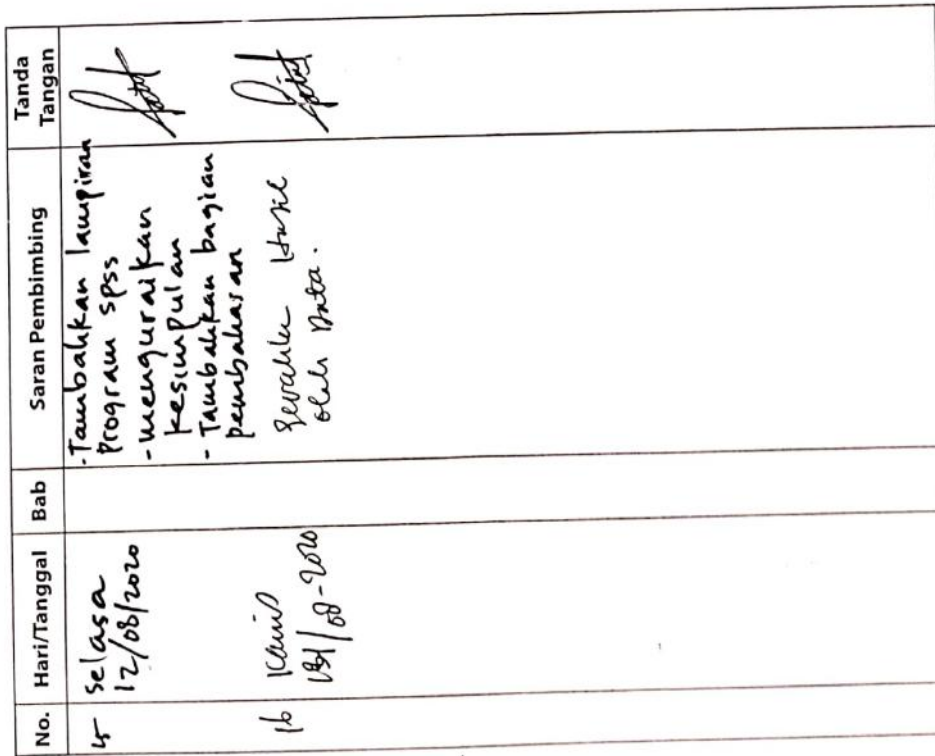 No.
Hari/Tanggal
Bab
Saran Pembimbing
Tanda
Tangan
selasa
12/08/2020
- Tambahkan lampiran
program spss
- menguraikan
kesimpulan
- Tambahkan bagian
pembahasan
16
Kamis
/08-2020
Hasil
olah Data.